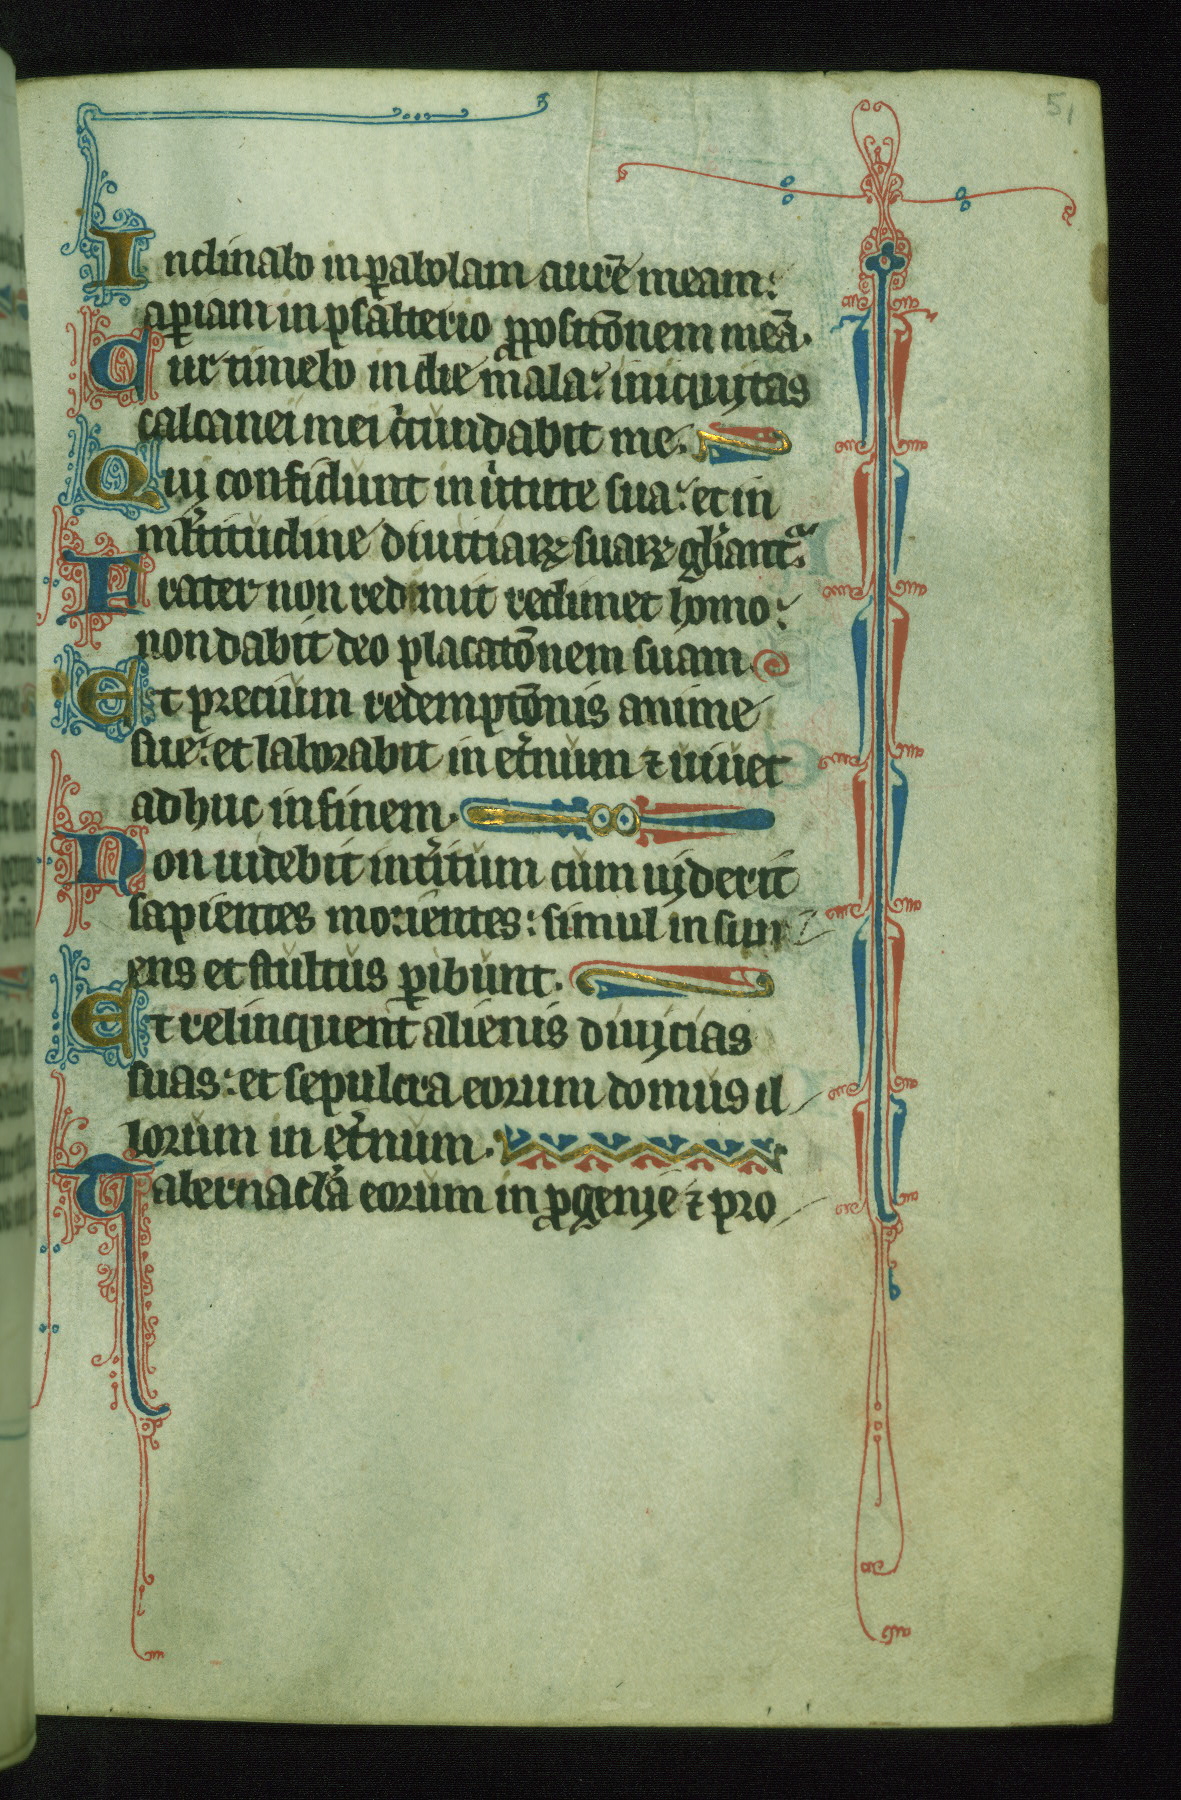 51
Inclinabo in ꝑabolam aurē meam:
aꝑiam in psalterio ꝓpositōnem meā.
Cur timebo in die mala: iniquytas
calcanei mei cͥcundabit me.
Quy confidunt in uͥtute sua: et in
ml̓titudine diuitiaꝝ suaꝝ gl̓iantᷣ.
Frater non redimit redimet homo:
non dabit deo placatōnem suam
Et precium redemptōnis anime
sue: et laborabit in et̓num ⁊ uiuet
adhuc in finem.
Non uidebit int̓itum cum uyderit
sapientes morientes: simul in sipi
ens et stultus ꝑibunt.
Et relinquent alienis diuycias
suas: et sepulcra eorum domus il
lorum in et̓num.
Tabernacl̓a eorum in ꝓgenye ⁊ pro